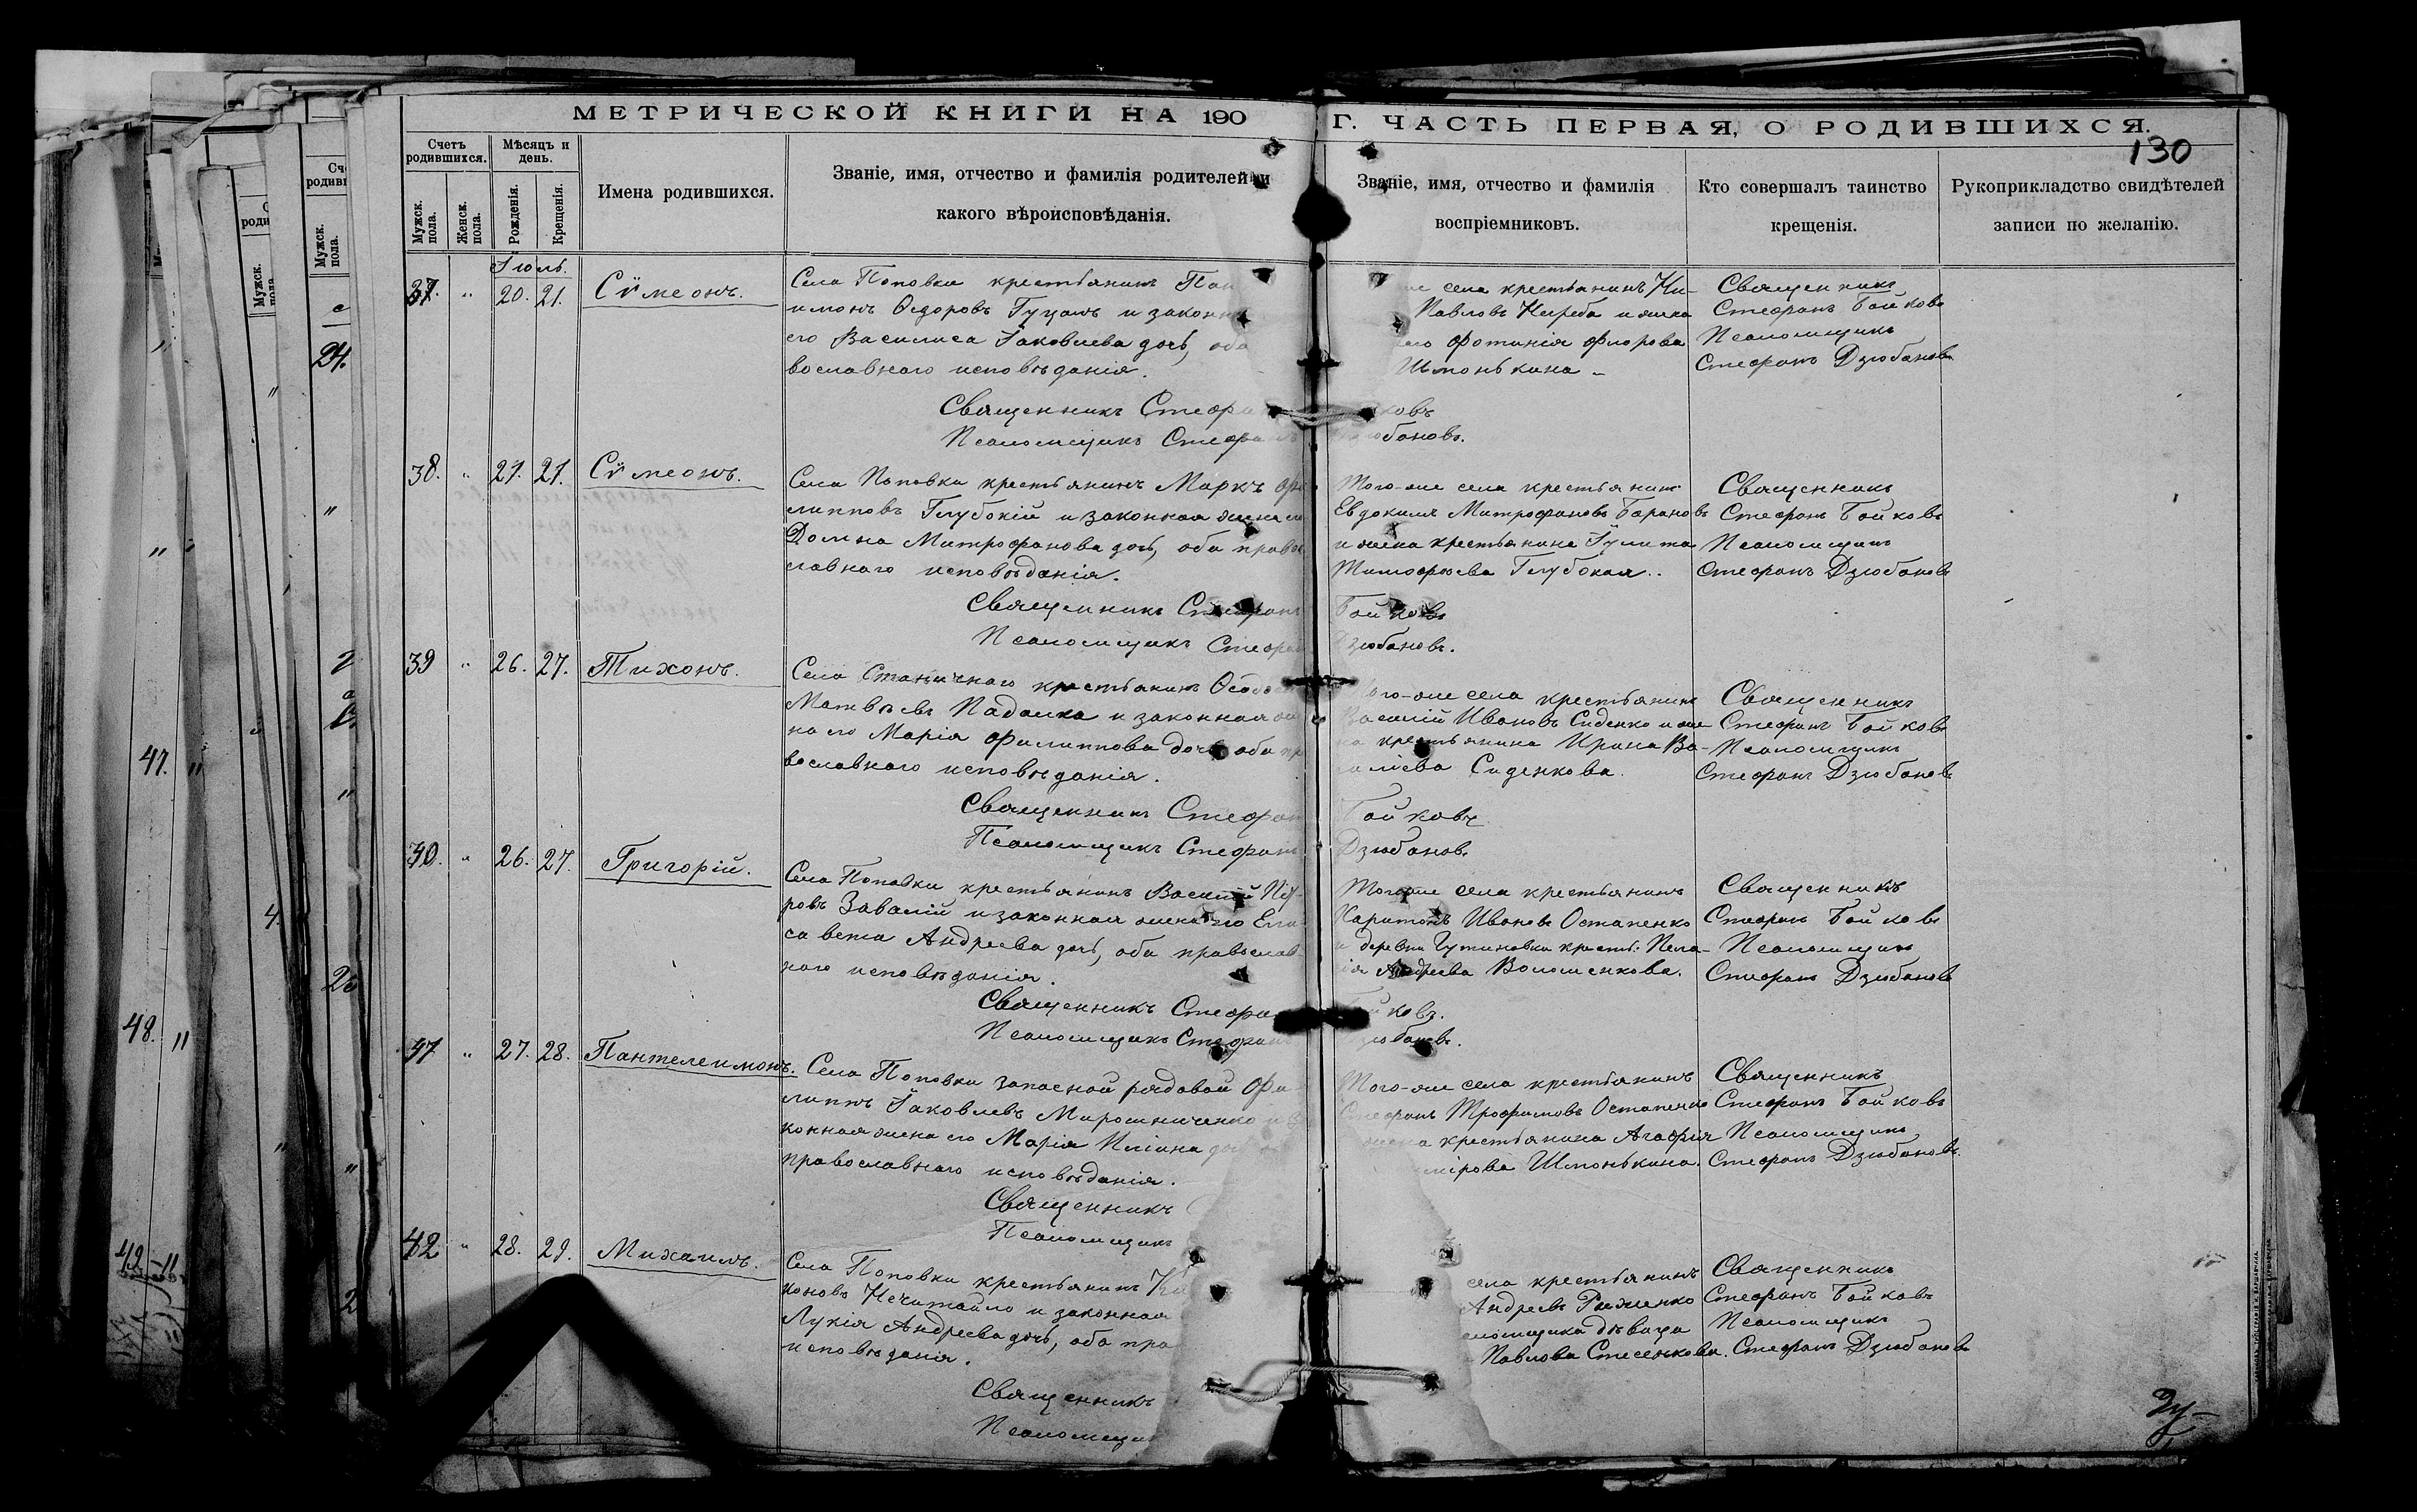 МЕТРИЧЕСКОЙ КНИГИ НА 190 Г. ЧАСТЬ ПЕРВАЯ, О РОДИВШИХСЯ.
130
Счетъ родившихся.
Мѣсяцъ и день.
Мужск. пола.
Женск. пола.
Рожденія.
Крещенія.
Имена родившихся.
Званіе, имя, отчество и фамилія родителей и
какого вѣроисповѣданія.
Званіе, имя, отчество и фамилія
воспріемниковъ.
Кто совершалъ таинство
крещенія.
Рукоприкладство свидѣтелей
записи по желанію.
Іюль.
37. " 20. 21. Сѵмеонъ.
Села Поповки крестьянинъ Пан
имонъ Ѳедоровъ Гуцолъ и законн
его Василиса Іаковлева дочь, оба
вославнаго исповѣданія.
Священникъ Стефа
Псаломщикъ Стефанъ
села крестьянинъ Ни-
Павловъ и жена
Фотинія Флорова
Шмонькина -
ковъ
юбановъ.
Священникъ
Стефанъ Бойковъ
Псаломщикъ
Стефанъ Дзюбановъ
38. " 21. 21. Сѵмеонъ.
Села Поповки крестьянинъ Маркъ Фи
липповъ Глубокій и законная жена его
Домна Митрофанова дочь, оба право
славнаго исповѣданія.
Священникъ Стефанъ
Псаломщикъ Стефан
Того-же села крестьянинъ
Евдокимъ Митрофановъ Барановъ
и жена крестьянина Іулита
Тимофѣева Глубокая..
Бойковъ
Дзюбановъ.
Священникъ
Стефанъ Бойковъ
Псаломщикъ
Стефанъ Дзюбановъ
39 " 26. 27. Тихонъ.
Села Станичнаго крестьянинъ
Матвѣевъ Падалка и законная же
на его Марія Филиппова дочь, оба пр
вославнаго исповѣданія.
Священникъ Стефан
Псаломщикъ Стефанъ
Того-же села крестьянинъ
Василій Ивановъ Сиденко и же
на крестьянина Ирина Ва-
силіева Сиденкова.
Бойковъ
Дзюбановъ
Священникъ
Стефанъ Бойковъ
Псаломщикъ
Стефанъ Дзюбановъ
40. " 26. 27. Григорій.
Села Поповки крестьянинъ Василій Пет-
ровъ Завалій и законная жена его Ели
савета Андреева дочь, оба православ-
наго исповѣданія.
Священникъ Стефа
Псаломщикъ Стефанъ
Того же села крестьянинъ
Харитонъ Ивановъ Остапенко
и деревни Гутиновки крест. Пела-
гія Андреева Волошенкова.
йковъ.
зюбановъ.
Священникъ
Стефанъ Бойковъ
Псаломщикъ
Стефанъ Дзюбановъ
41 " 27. 28. Пантелеимонъ.
Села Поповки запасной рядовой Фи-
липпъ Іаковлевъ Мирошниченко и за
конная жена его Марія Иліина дочь
православнаго исповѣданія.
Священникъ
Псаломщикъ
Того-же села крестьянинъ
Стефанъ Трофимовъ Остапенко
жена крестьянина Агафія
мірова Шмонькина.
Священникъ
Стефанъ Бойковъ
Псаломщикъ
Стефанъ Дзюбановъ.
42 " 28. 29. Михаилъ.
Села Поповки крестьянинъ
коновъ Нечитайло и законная
Лукія Андреева дочь, оба пра
исповѣданія.
Священникъ
Псаломщи
села крестьянинъ
Андреевъ Рыженко
ломщика дѣвица
Павлова Стесенкова.
Священникъ
Стефанъ Бойковъ
Псаломщикъ
Стефанъ Дзюбановъ
47.
48.
24.